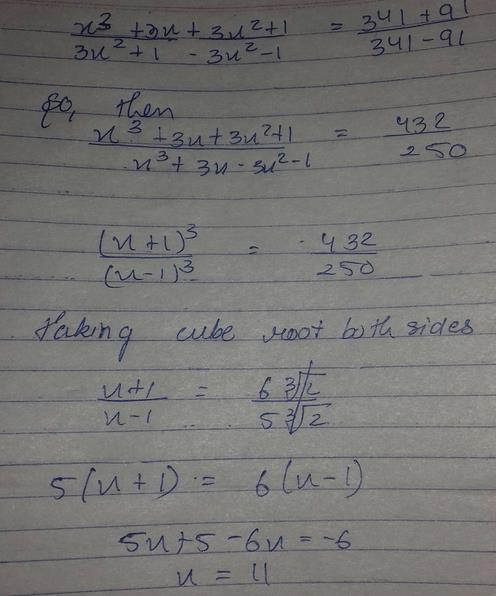 x³ + 3x + 3x² + 1 / 3x² + 1 - 3x² - 1 = 341 + 91 / 341 - 91
So, then
x³ + 3x + 3x² + 1 / x³ + 3x - 3x² - 1 = 432 / 250
(x + 1)³ / (x - 1)³ = 432 / 250
Taking cube root both sides
x + 1 / x - 1 = 6 ∛2 / 5 ∛2
5(x + 1) = 6(x - 1)
5x + 5 - 6x = -6
x = 11